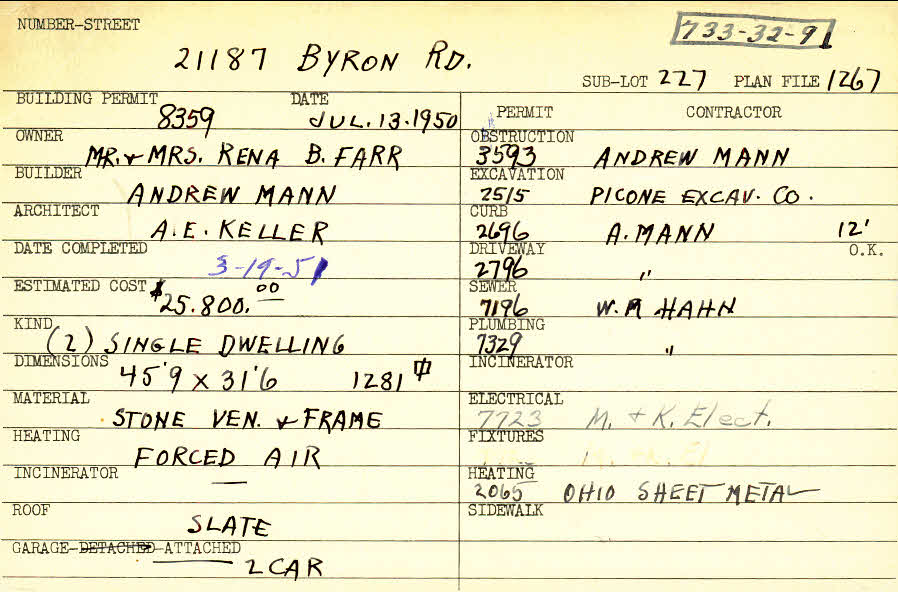 NUMBER-STREET
733-32-9
21187 BYRON RD.
SUB-LOT 227 PLAN FILE 1267
BUILDING PERMIT DATE
8359 JUL. 13. 1950
OWNER
MR. & MRS. RENA B. FARR
BUILDER
ANDREW MANN
ARCHITECT
A. E. KELLER
DATE COMPLETED
3-19-51
ESTIMATED COST $25.800.00
KIND
(2) SINGLE DWELLING
DIMENSIONS
45'9 X 31'6 1281
MATERIAL
STONE VEN. & FRAME
HEATING
FORCED AIR
INCINERATOR
—
ROOF
SLATE
GARAGE-DETACHED-ATTACHED
2 CAR
PERMIT CONTRACTOR
OBSTRUCTION
3593 ANDREW MANN
EXCAVATION
2515 PICONE EXCAV. CO.
CURB
2696 A. MANN 12'
DRIVEWAY O.K.
2796 "
SEWER
7196 W. M HAHN
PLUMBING
7329 "
INCINERATOR
ELECTRICAL
7723 M. & K. Elect.
FIXTURES
HEATING
2065 OHIO SHEET METAL
SIDEWALK